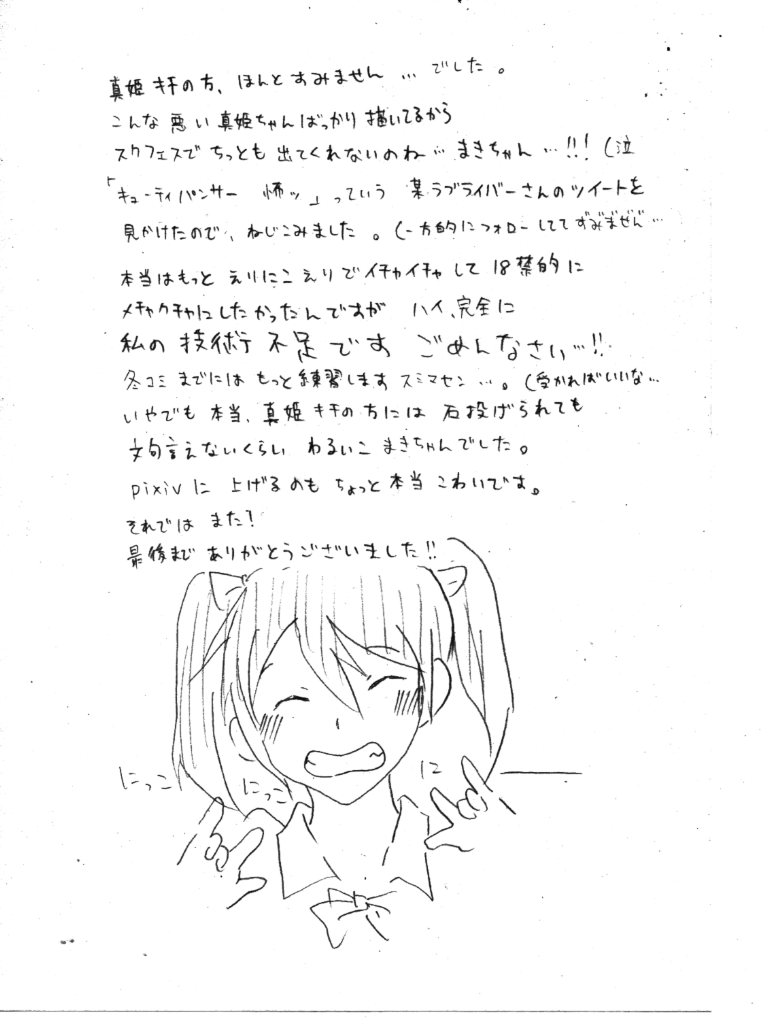 真姫キチの方、ほんとすみません…でした。
こんな悪い真姫ちゃんばっかり描いてるから
スクフェスでちっとも出てくれないのね…まきちゃん…!!!(泣
「キューティパンサー 怖ッ」っていう 某ラブライバーさんのツイートを
見かけたので、ねじこみました。(一方的にフォローしててずみまぜん゛…
本当はもっと えりにこえりでイチャイチャして 18禁的に
メチャクチャにしたかったんですが ハイ、完全に
私の技術不足です ごめんなさい…!!
冬コミまでには もっと練習します スミマセン…。(受かればいいな…
いやでも本当、真姫キチの方には 石投げられても
文句言えないくらい わるいこ まきちゃんでした。
pixivに 上げるのも ちょっと本当 こわいです。
それでは また!
最後まで ありがとうございました!!
にっこ
にっこ
に